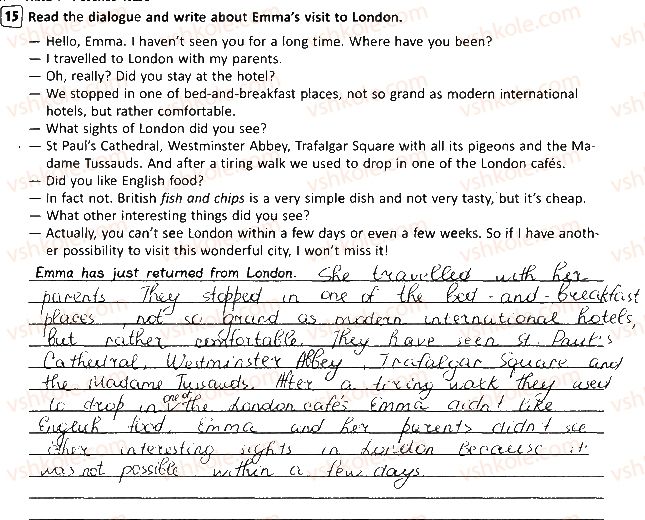 15 Read the dialogue and write about Emma's visit to London.
— Hello, Emma. I haven't seen you for a long time. Where have you been?
— I travelled to London with my parents.
— Oh, really? Did you stay at the hotel?
— We stopped in one of bed-and-breakfast places, not so grand as modern international
hotels, but rather comfortable.
— What sights of London did you see?
— St Paul's Cathedral, Westminster Abbey, Trafalgar Square with all its pigeons and the Ma-
dame Tussauds. And after a tiring walk we used to drop in one of the London cafés.
— Did you like English food?
— In fact not. British fish and chips is a very simple dish and not very tasty, but it's cheap.
— What other interesting things did you see?
— Actually, you can't see London within a few days or even a few weeks. So if I have anoth-
er possibility to visit this wonderful city, I won't miss it!
Emma has just returned from London. She travelled with her
parents. They stopped in one of the bed-and-breakfast
places, not so grand as modern international hotels,
but rather comfortable. They have seen St. Paul's
Cathedral, Westminster Abbey, Trafalgar Square and
the Madame Tussauds. After a tiring walk they used
to drop in one of the London cafés. Emma didn't like
English food. Emma and her parents didn't see
other interesting sights in London because it
was not possible within a few days.